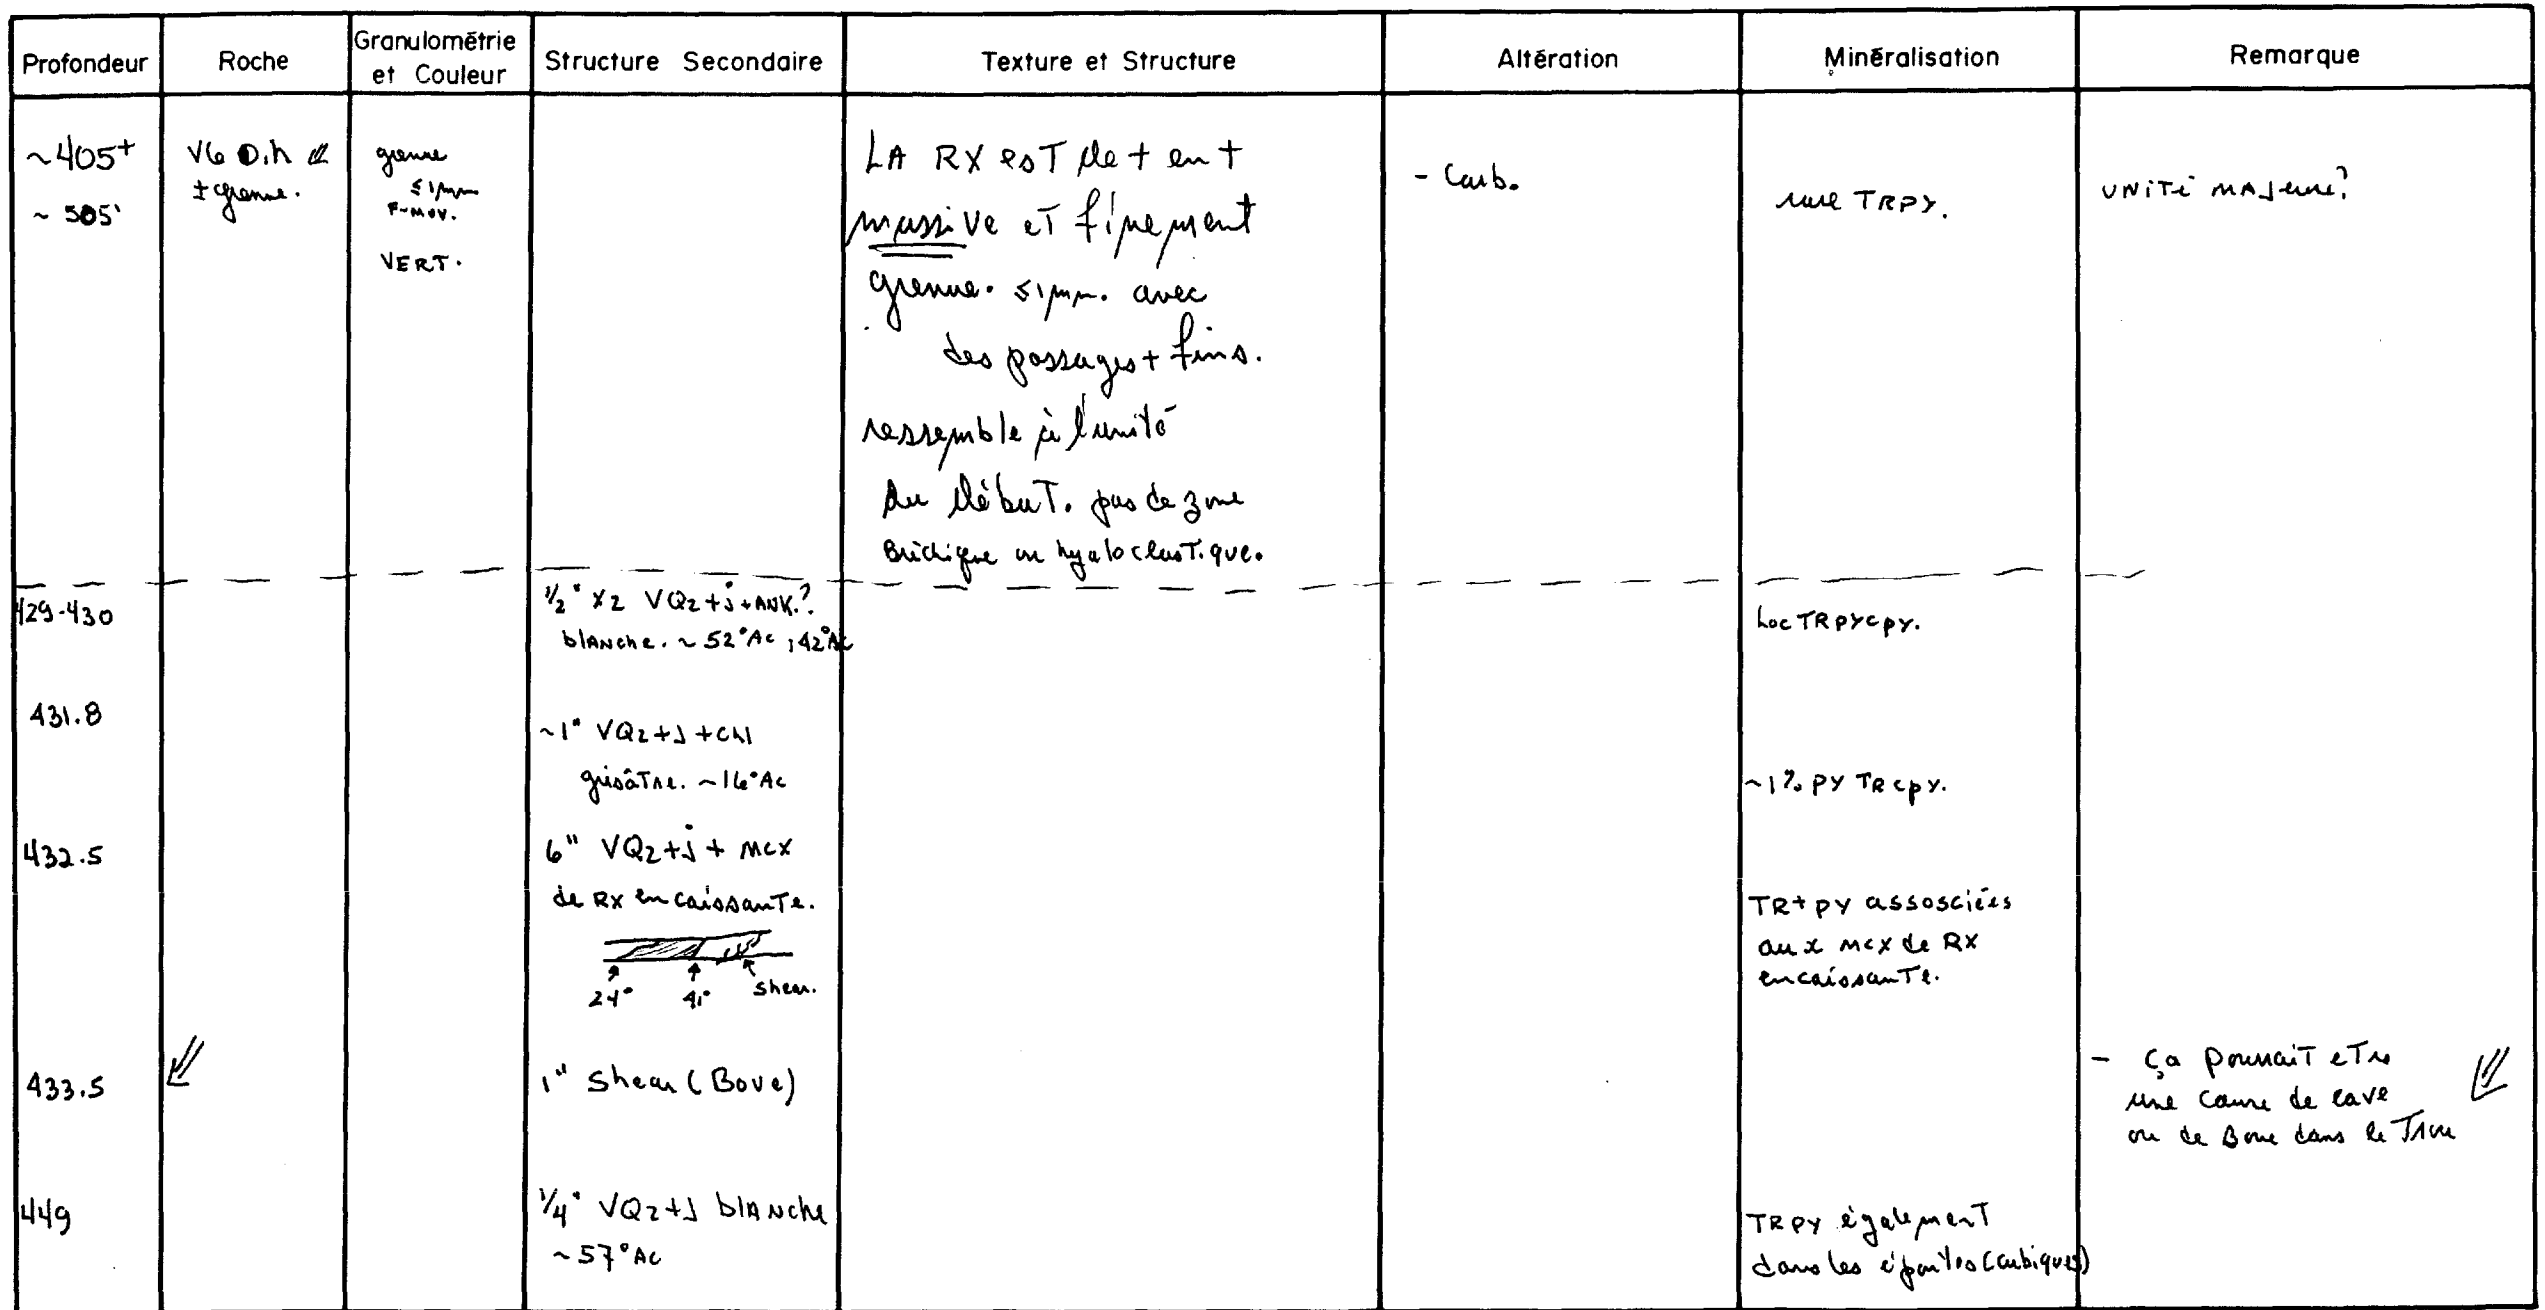 Profondeur
Roche
Granulométrie
et Couleur
Structure Secondaire
Texture et Structure
Altération
Minéralisation
Remarque
~405+
~ 505'
V6 D.h
± grenue.
grenue
≤1mm
F-MOY.
VERT.
LA RX esT de + en +
massive eT finement
grenue. ≤1mm. avec
des passages + fins.
ressemble à l'unité
du débuT. pas de zone
Bréchique ou hyaloclasTique.
- Carb.
rare TRPY.
UNITÉ MAJeure?
429-430
1/2" x2 VQz+j+ANK.?
blANche. ~52°Ac ; 42°Ac
Loc TRPYCPY.
431.8
~1" VQz+J+Chl
grisâTre. ~16°Ac
~1% PY TRCPY.
432.5
6" VQz+j+ MCX
de RX encaissanTe.
24° 41° shear.
TR+PY assosciées
aux MCX de RX
encaissanTe.
433.5
1" Shear (Boue)
- ça pourraiT eTre
une cause de cave
ou de Boue dans le Trou
449
1/4" VQz+J blANche
~57°Ac
TRPY égalemenT
dans les épontes (cubiques)